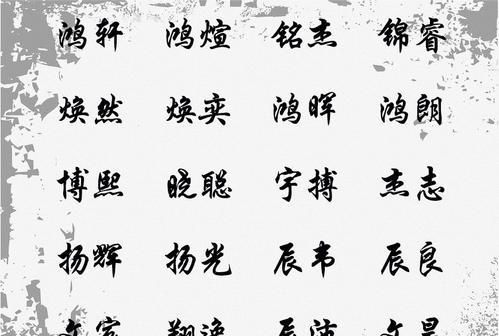 鸿轩 鸿煊 铭杰 锦睿
焕然 焕奕 鸿晖 鸿朗
博熙 晓聪 宇搏 杰志
扬辉 扬光 辰韦 辰良